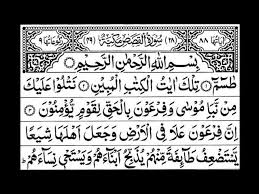 اٰیاتها ٨٨ (٢٨) سُوْرَةُ الْقَصَصِ مَكِّيَّةٌ (٤٩) رُكُوْعَاتُهَا ٩
بِسْمِ اللّٰهِ الرَّحْمٰنِ الرَّحِيْمِ
طٰسٓمّٓ ۝١ تِلْكَ اٰيٰتُ الْكِتٰبِ الْمُبِيْنِ ۝٢ نَتْلُوْا عَلَيْكَ
مِنْ نَّبَاِ مُوْسٰى وَفِرْعَوْنَ بِالْحَقِّ لِقَوْمٍ يُّؤْمِنُوْنَ ۝٣
اِنَّ فِرْعَوْنَ عَلَا فِى الْاَرْضِ وَجَعَلَ اَهْلَهَا شِيَعًا
يَّسْتَضْعِفُ طَآئِفَةً مِّنْهُمْ يُذَبِّحُ اَبْنَآءَهُمْ وَيَسْتَحْىٖ نِسَآءَهُمْ